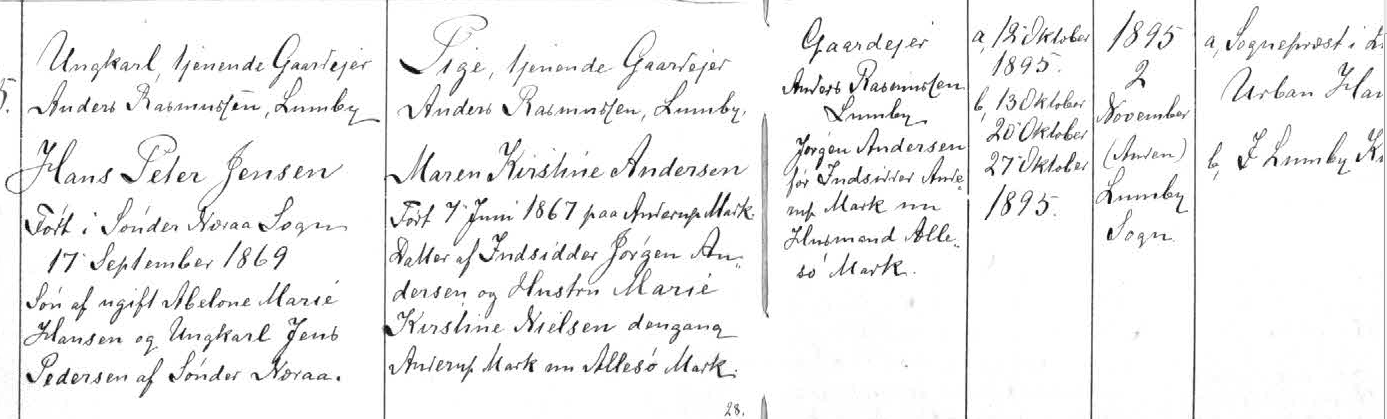 5.
Ungkarl, tjenende Gaardejer
Anders Rasmussen, Lumby
Hans Peter Jensen
Født i Sønder Næraa Sogn
17 September 1869
Søn af ugift Abelone Marie
Hansen og Ungkarl Jens
Pedersen af Sønder Næraa.
Pige, tjenende Gaardejer
Anders Rasmussen, Lumby.
Maren Kirstine Andersen
Født 7 Juni 1867 paa Anderup Mark
Datter af Indsidder Jørgen An-
dersen og Hustru Marie
Kirstine Nielsen dengang
Anderup Mark nu Allesø Mark.
28.
Gaardejer
Anders Rasmussen
Lumby
Jørgen Andersen
før Indsidder Ande-
rup Mark nu
Husmand Alle-
sø Mark.
a, 12 Oktober
1895.
b, 13 Oktober
20 Oktober
27 Oktober
1895.
1895
2
November
(Anden)
Lumby
Sogn
a, Sognepræst i
Urban
b, I Lumby